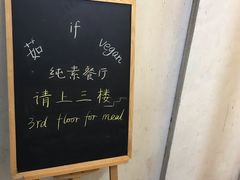 if
茹 vegan
纯素餐厅
请上三楼
3rd floor for meal